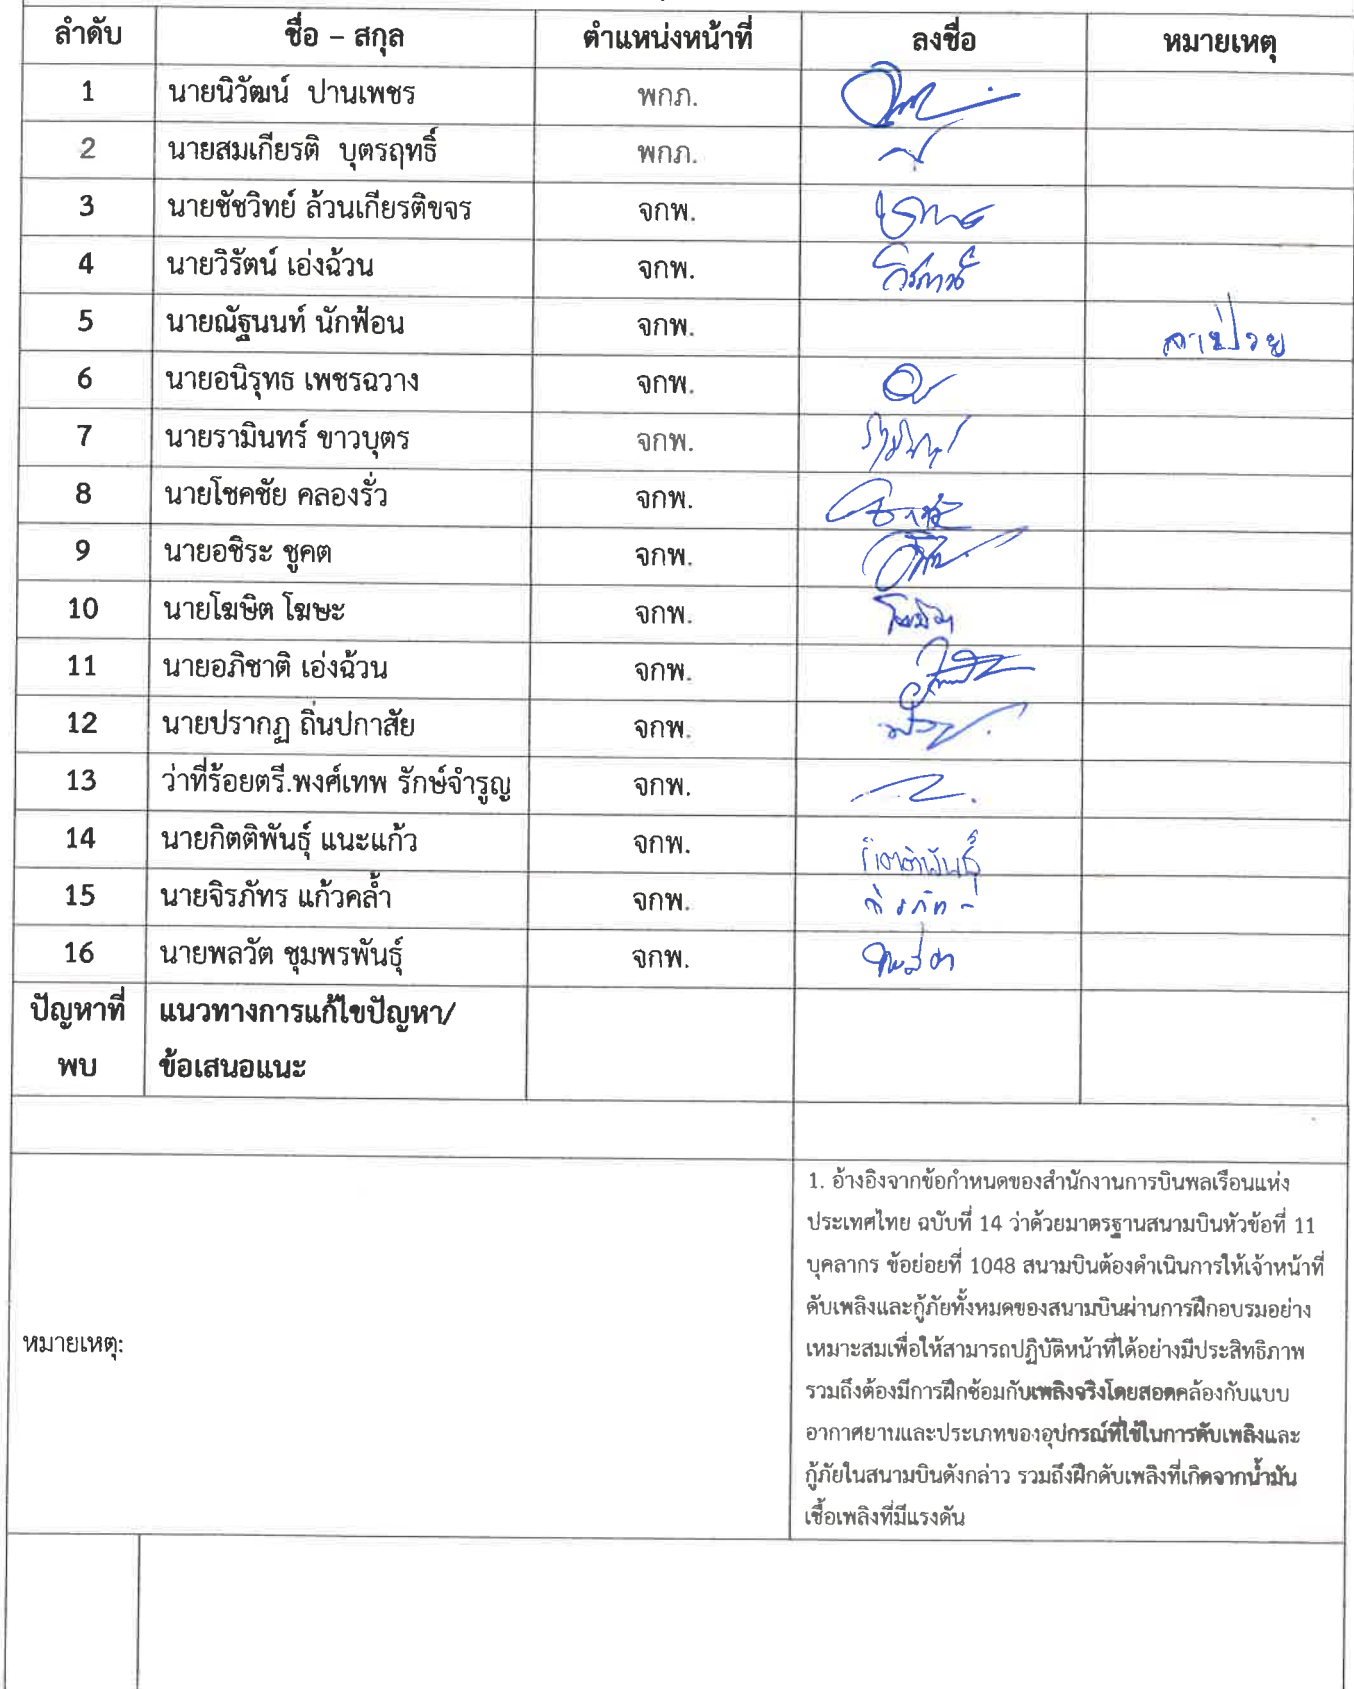 ลำดับ ชื่อ – สกุล ตำแหน่งหน้าที่ ลงชื่อ หมายเหตุ
1 นายนิวัฒน์ ปานเพชร พกภ.
2 นายสมเกียรติ บุตรฤทธิ์ พกภ.
3 นายชัชวิทย์ ล้วนเกียรติขจร จกพ.
4 นายวิรัตน์ เอ่งฉ้วน จกพ. วิรัตน์
5 นายณัฐนนท์ นักฟ้อน จกพ. ลาป่วย
6 นายอนิรุทธ เพชรฉวาง จกพ.
7 นายรามินทร์ ขาวบุตร จกพ. รามินทร์
8 นายโชคชัย คลองรั่ว จกพ.
9 นายอชิระ ชูคต จกพ.
10 นายโฆษิต โฆษะ จกพ. โฆษิต
11 นายอภิชาติ เอ่งฉ้วน จกพ.
12 นายปรากฏ ถิ่นปกาสัย จกพ.
13 ว่าที่ร้อยตรี.พงศ์เทพ รักษ์จำรูญ จกพ.
14 นายกิตติพันธุ์ แนะแก้ว จกพ. กิตติพันธุ์
15 นายจิรภัทร แก้วคล้ำ จกพ. จิรภัทร
16 นายพลวัต ชุมพรพันธุ์ จกพ.
ปัญหาที่ แนวทางการแก้ไขปัญหา/
พบ ข้อเสนอแนะ
หมายเหตุ:
1. อ้างอิงจากข้อกำหนดของสำนักงานการบินพลเรือนแห่ง
ประเทศไทย ฉบับที่ 14 ว่าด้วยมาตรฐานสนามบินหัวข้อที่ 11
บุคลากร ข้อย่อยที่ 1048 สนามบินต้องดำเนินการให้เจ้าหน้าที่
ดับเพลิงและกู้ภัยทั้งหมดของสนามบินผ่านการฝึกอบรมอย่าง
เหมาะสมเพื่อให้สามารถปฏิบัติหน้าที่ได้อย่างมีประสิทธิภาพ
รวมถึงต้องมีการฝึกซ้อมกับเพลิงจริงโดยสอดคล้องกับแบบ
อากาศยานและประเภทของอุปกรณ์ที่ใช้ในการดับเพลิงและ
กู้ภัยในสนามบินดังกล่าว รวมถึงฝึกดับเพลิงที่เกิดจากน้ำมัน
เชื้อเพลิงที่มีแรงดัน